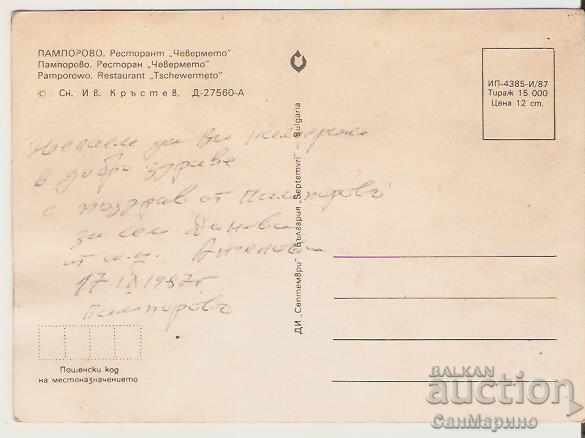 ПАМПОРОВО. Ресторант „Чевермето"
Пампорово. Ресторан „Чевермето"
Pamporowo. Restaurant „Tschewermeto"
© Сн. Ив. Кръстев. Д-27560-А
ИП-4385-И/87
Тираж 15 000
Цена 12 ст.
да Ви
в добро здраве
с поздрав от Пампорово
за сем.
от
17 IX 1987г
Пампорово
ДИ „Септември" България „Septemvri" - Bulgaria
Пощенски код
на местоназначението
BALKAN
auction
СанМарино